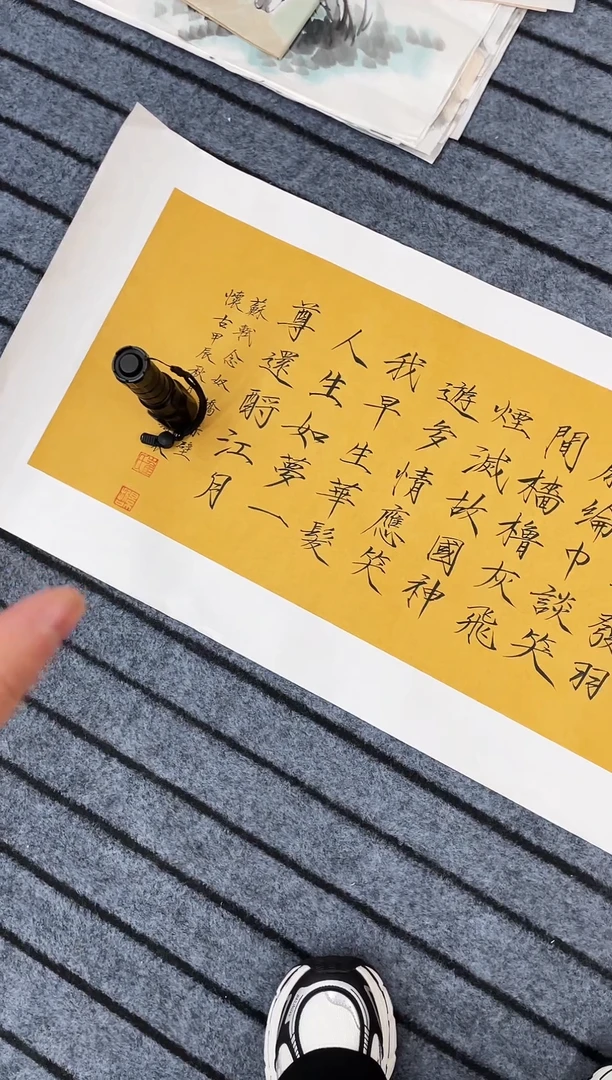 發羽
綸巾談笑
間檣櫓灰飛
煙滅故國神
遊多情應笑
我早生華髮
人生如夢一
尊還酹江月
蘇軾念奴嬌壁
懷古甲辰秋